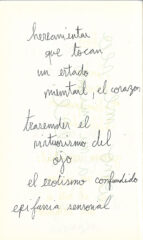 herramientas
que tocan
un estado
mental, el corazón
trascender el
virtuosismo del
ojo
el erotismo confundido
epifanía sensorial